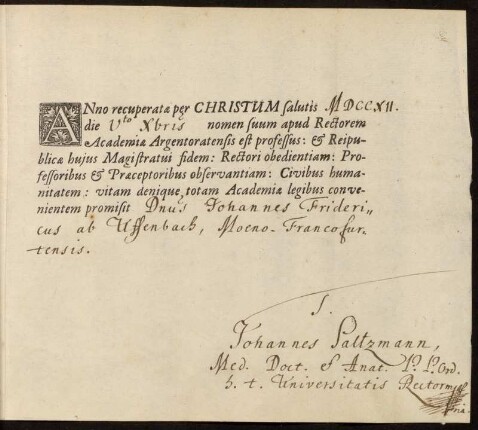 ANno recuperatæ per CHRISTUM salutis MDCCXII.
die Vto Xbris nomen suum apud Rectorem
Academiæ Argentoratensis est professus: & Reipu-
blicæ hujus Magistratui fidem: Rectori obedientiam: Pro-
fessoribus & Præceptoribus observantiam: Civibus huma-
nitatem: vitam denique totam Academiæ legibus conve-
nientem promisit Dnus Johannes Frideri,,
cus ab Uffenbach, Moeno-Francofur-
tensis.
Johannes Saltzmann,
Med. Doct. & Anat. P. P. Ord.
h. t. Universitatis Rector